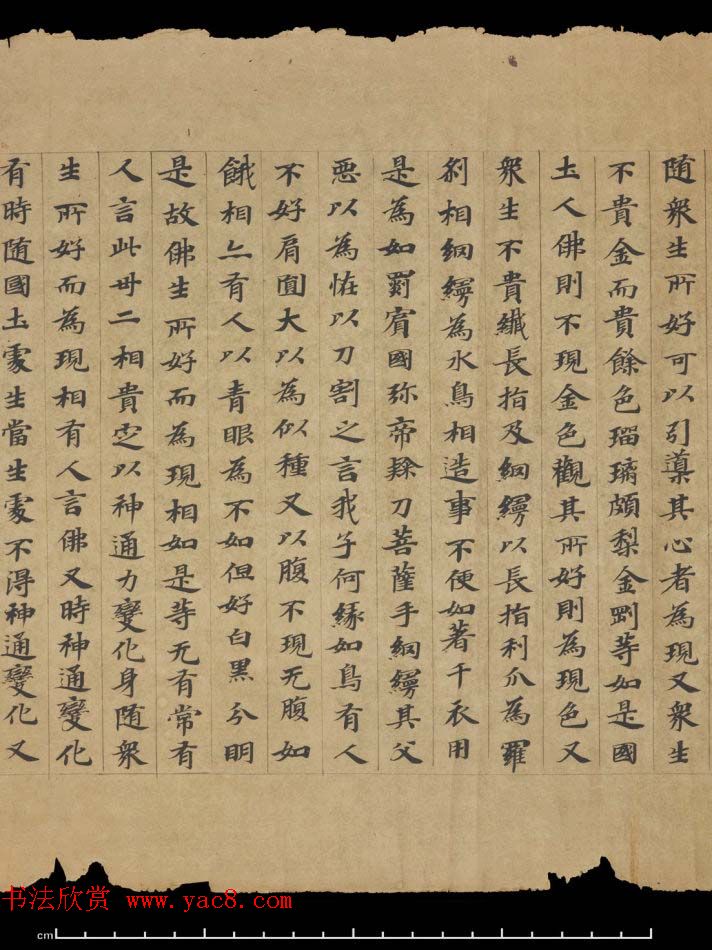 随衆生所好可以引導其心者為現又衆生
不貴金而貴餘色瑠璃頗梨金剛等如是國
土人佛則不現金色觀其所好則為現色又
衆生不貴纎長指及網縵以長指利爪為羅
刹相網縵為水鳥相造事不便如著千衣用
是為如罽賓國弥帝隸刀菩薩手網縵其父
惡以為恠以刀割之言我子何縁如鳥有人
不好肩圎大以為似種又以腹不現无腹如
餓相亦有人以青眼為不如但好白黒分明
是故佛生所好而為現相如是等无有常有
人言此卅二相貴㝎以神通力變化身随衆
生所好而為現相有人言佛又時神通變化
有時随國土處生當生處不得神通變化又
书法欣赏 www.yac8.com
cm